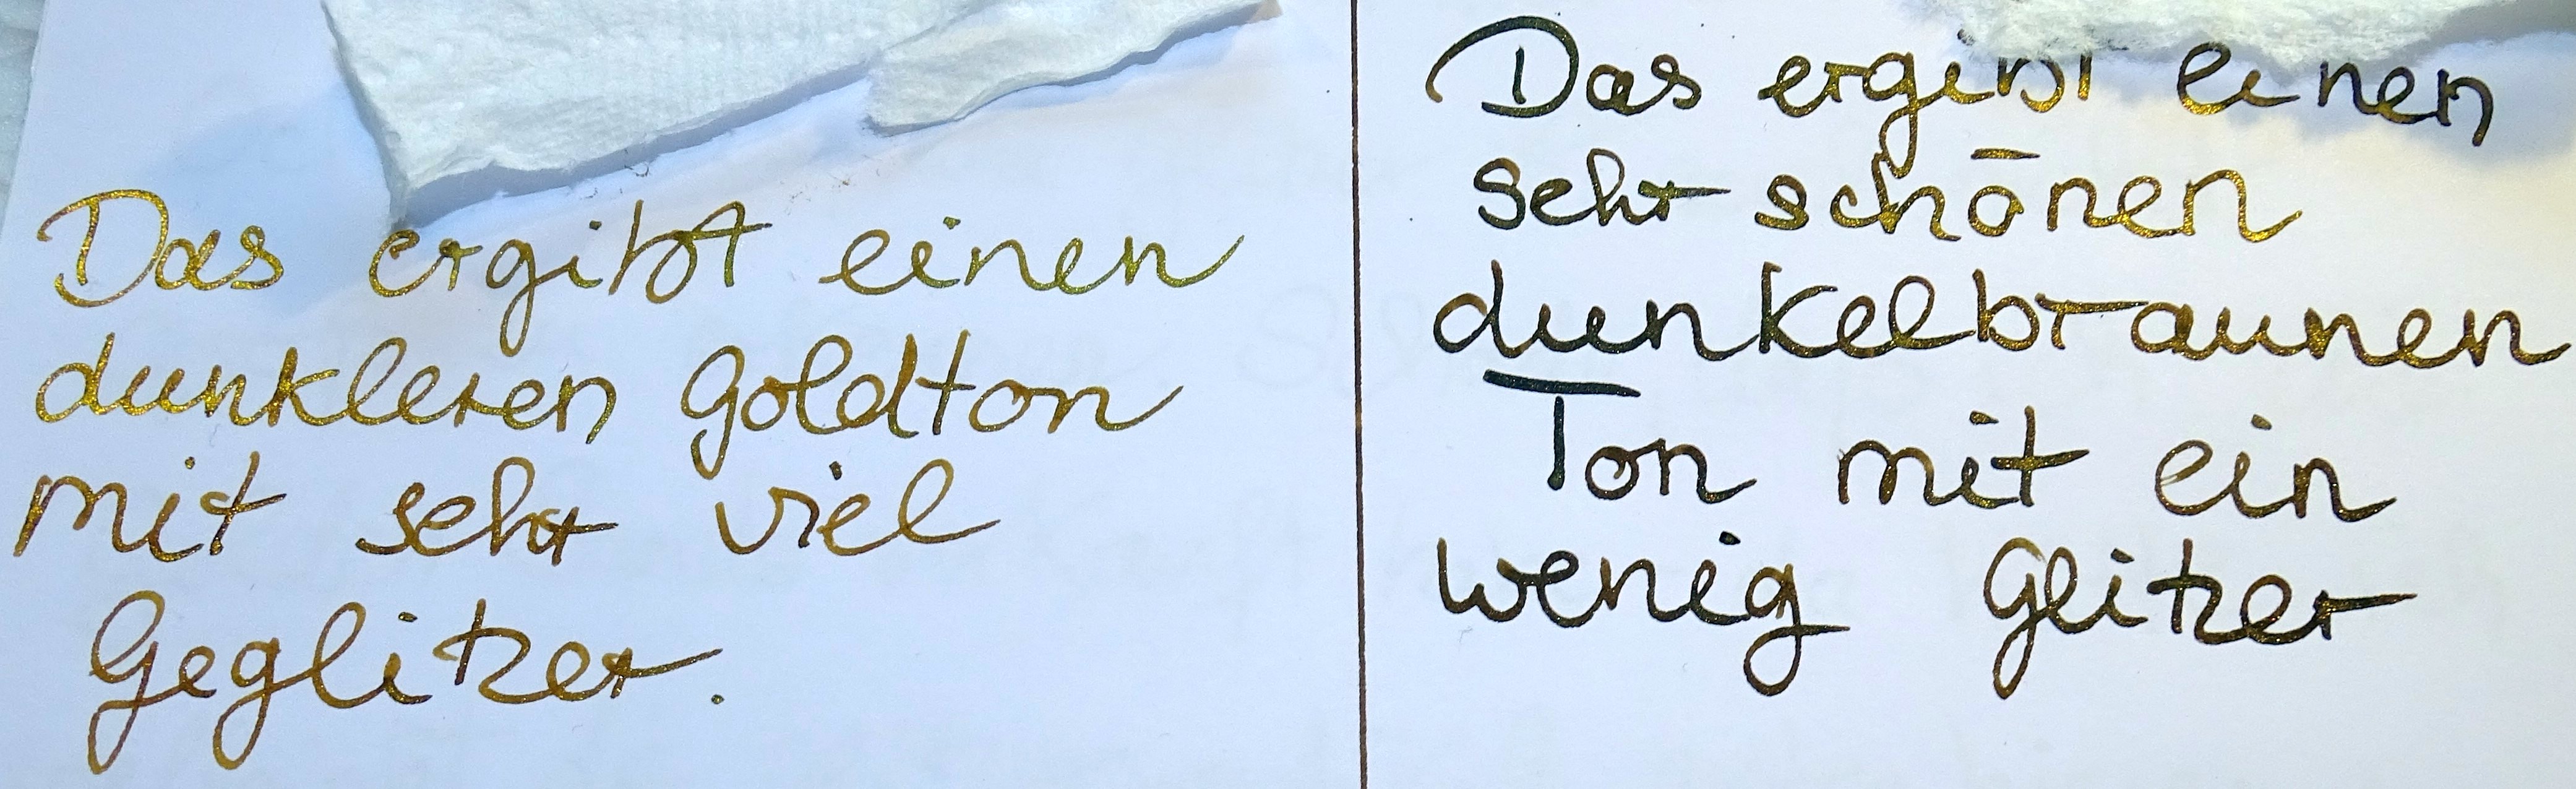 Das ergibt einen
dunkleren Goldton
mit sehr viel
Geglitzer.
Das ergibt einen
sehr schönen
dunkelbraunen
Ton mit ein
wenig Glitzer